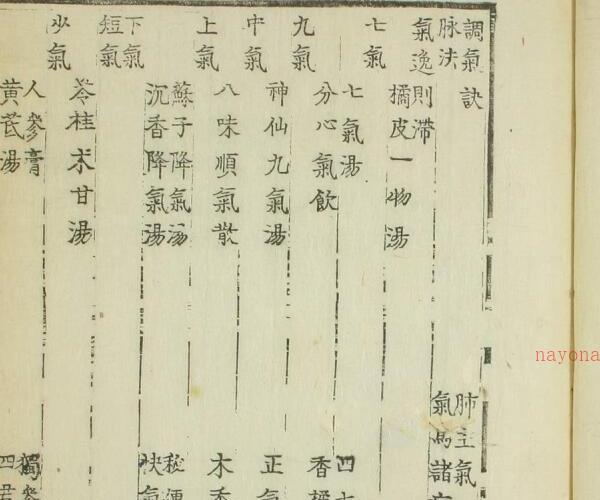 調氣訣
肺主氣
脉法
氣爲諸
氣逸則滯
橘皮一物湯
七氣
七氣湯
四
分心氣飲
香
九氣
神仙九氣湯
正
中氣
八味順氣散
木
上氣
蘇子降氣湯
沉香降氣湯
快
下氣
短氣
苓桂朮甘湯
少氣
人參膏
獨
黃芪湯
四